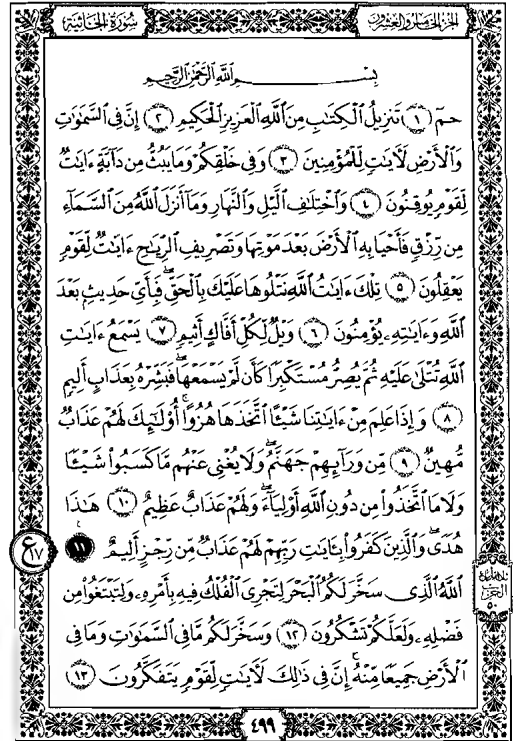 سورة الجاثية
الجزء الخامس والعشرون
بِسْمِ اللَّهِ الرَّحْمَٰنِ الرَّحِيمِ
حمٓ ﴿١﴾ تَنزِيلُ الْكِتَٰبِ مِنَ اللَّهِ الْعَزِيزِ الْحَكِيمِ ﴿٢﴾ إِنَّ فِي السَّمَٰوَٰتِ
وَالْأَرْضِ لَءَايَٰتٍ لِّلْمُؤْمِنِينَ ﴿٣﴾ وَفِي خَلْقِكُمْ وَمَا يَبُثُّ مِن دَآبَّةٍ ءَايَٰتٌ
لِّقَوْمٍ يُوقِنُونَ ﴿٤﴾ وَاخْتِلَٰفِ الَّيْلِ وَالنَّهَارِ وَمَآ أَنزَلَ اللَّهُ مِنَ السَّمَآءِ
مِن رِّزْقٍ فَأَحْيَا بِهِ الْأَرْضَ بَعْدَ مَوْتِهَا وَتَصْرِيفِ الرِّيَٰحِ ءَايَٰتٌ لِّقَوْمٍ
يَعْقِلُونَ ﴿٥﴾ تِلْكَ ءَايَٰتُ اللَّهِ نَتْلُوهَا عَلَيْكَ بِالْحَقِّ ۖ فَبِأَيِّ حَدِيثٍ بَعْدَ
اللَّهِ وَءَايَٰتِهِۦ يُؤْمِنُونَ ﴿٦﴾ وَيْلٌ لِّكُلِّ أَفَّاكٍ أَثِيمٍ ﴿٧﴾ يَسْمَعُ ءَايَٰتِ
اللَّهِ تُتْلَىٰ عَلَيْهِ ثُمَّ يُصِرُّ مُسْتَكْبِرًا كَأَن لَّمْ يَسْمَعْهَا ۖ فَبَشِّرْهُ بِعَذَابٍ أَلِيمٍ
﴿٨﴾ وَإِذَا عَلِمَ مِنْ ءَايَٰتِنَا شَيْـًٔا اتَّخَذَهَا هُزُوًا ۚ أُو۟لَٰٓئِكَ لَهُمْ عَذَابٌ
مُّهِينٌ ﴿٩﴾ مِّن وَرَآئِهِمْ جَهَنَّمُ ۖ وَلَا يُغْنِي عَنْهُم مَّا كَسَبُوا۟ شَيْـًٔا
وَلَا مَا اتَّخَذُوا۟ مِن دُونِ اللَّهِ أَوْلِيَآءَ ۖ وَلَهُمْ عَذَابٌ عَظِيمٌ ﴿١٠﴾ هَٰذَا
هُدًى ۖ وَالَّذِينَ كَفَرُوا۟ بِـَٔايَٰتِ رَبِّهِمْ لَهُمْ عَذَابٌ مِّن رِّجْزٍ أَلِيمٌ ﴿١١﴾
ع ١٧
اللَّهُ الَّذِي سَخَّرَ لَكُمُ الْبَحْرَ لِتَجْرِيَ الْفُلْكُ فِيهِ بِأَمْرِهِۦ وَلِتَبْتَغُوا۟ مِن
فَضْلِهِۦ وَلَعَلَّكُمْ تَشْكُرُونَ ﴿١٢﴾ وَسَخَّرَ لَكُم مَّا فِي السَّمَٰوَٰتِ وَمَا فِي
الْأَرْضِ جَمِيعًا مِّنْهُ ۚ إِنَّ فِي ذَٰلِكَ لَءَايَٰتٍ لِّقَوْمٍ يَتَفَكَّرُونَ ﴿١٣﴾
الحزب
٥٠
٤٩٩